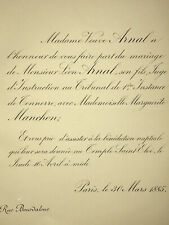 Madame Veuve Arnal a
l'honneur de vous faire part du mariage
de Monsieur Léon Arnal, son fils, Juge
d'Instruction au Tribunal de 1ère Instance
de Tonnerre, avec Mademoiselle Marguerite
Manchon;
Et vous prie d'assister à la bénédiction nuptiale
qui leur sera donnée au Temple Saint Eloi, le
Jeudi 16 Avril à midi.
Paris, le 30 Mars 1885.
Rue